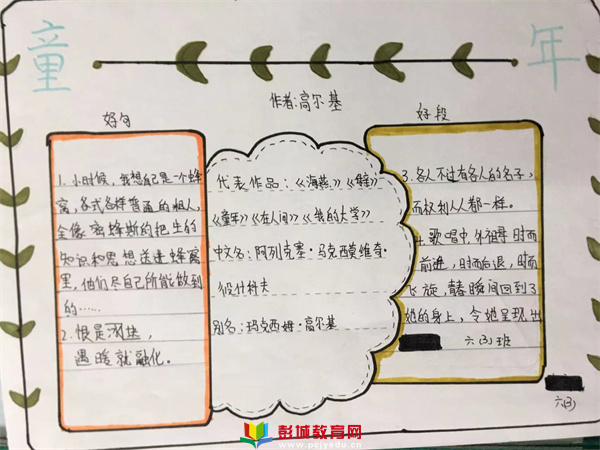 童年
作者:高尔基
好句
好段
1.小时候,我想自己是一个蜂
窝,各式各样普通的粗人,
全像蜜蜂斯的把生的
知识和思想送进蜂窝
里,他们尽自己所能做到
的……
2.恨是冰块,
遇暖就融化。
代表作品:《海燕》《
《童年》《在人间》《我的大学》
中文名:阿列克塞·马克西莫维奇·
彼什科夫
别名:玛克西姆·高尔基
3.各人不过有各人的名子,
而权利人人都一样。
歌唱中,外祖母时而
前进,时而后退,时而
飞旋,青春瞬间回到了
她的身上,令她呈现出
六(3)班
六(3)
彭城教育网
www.pcjyedu.cn